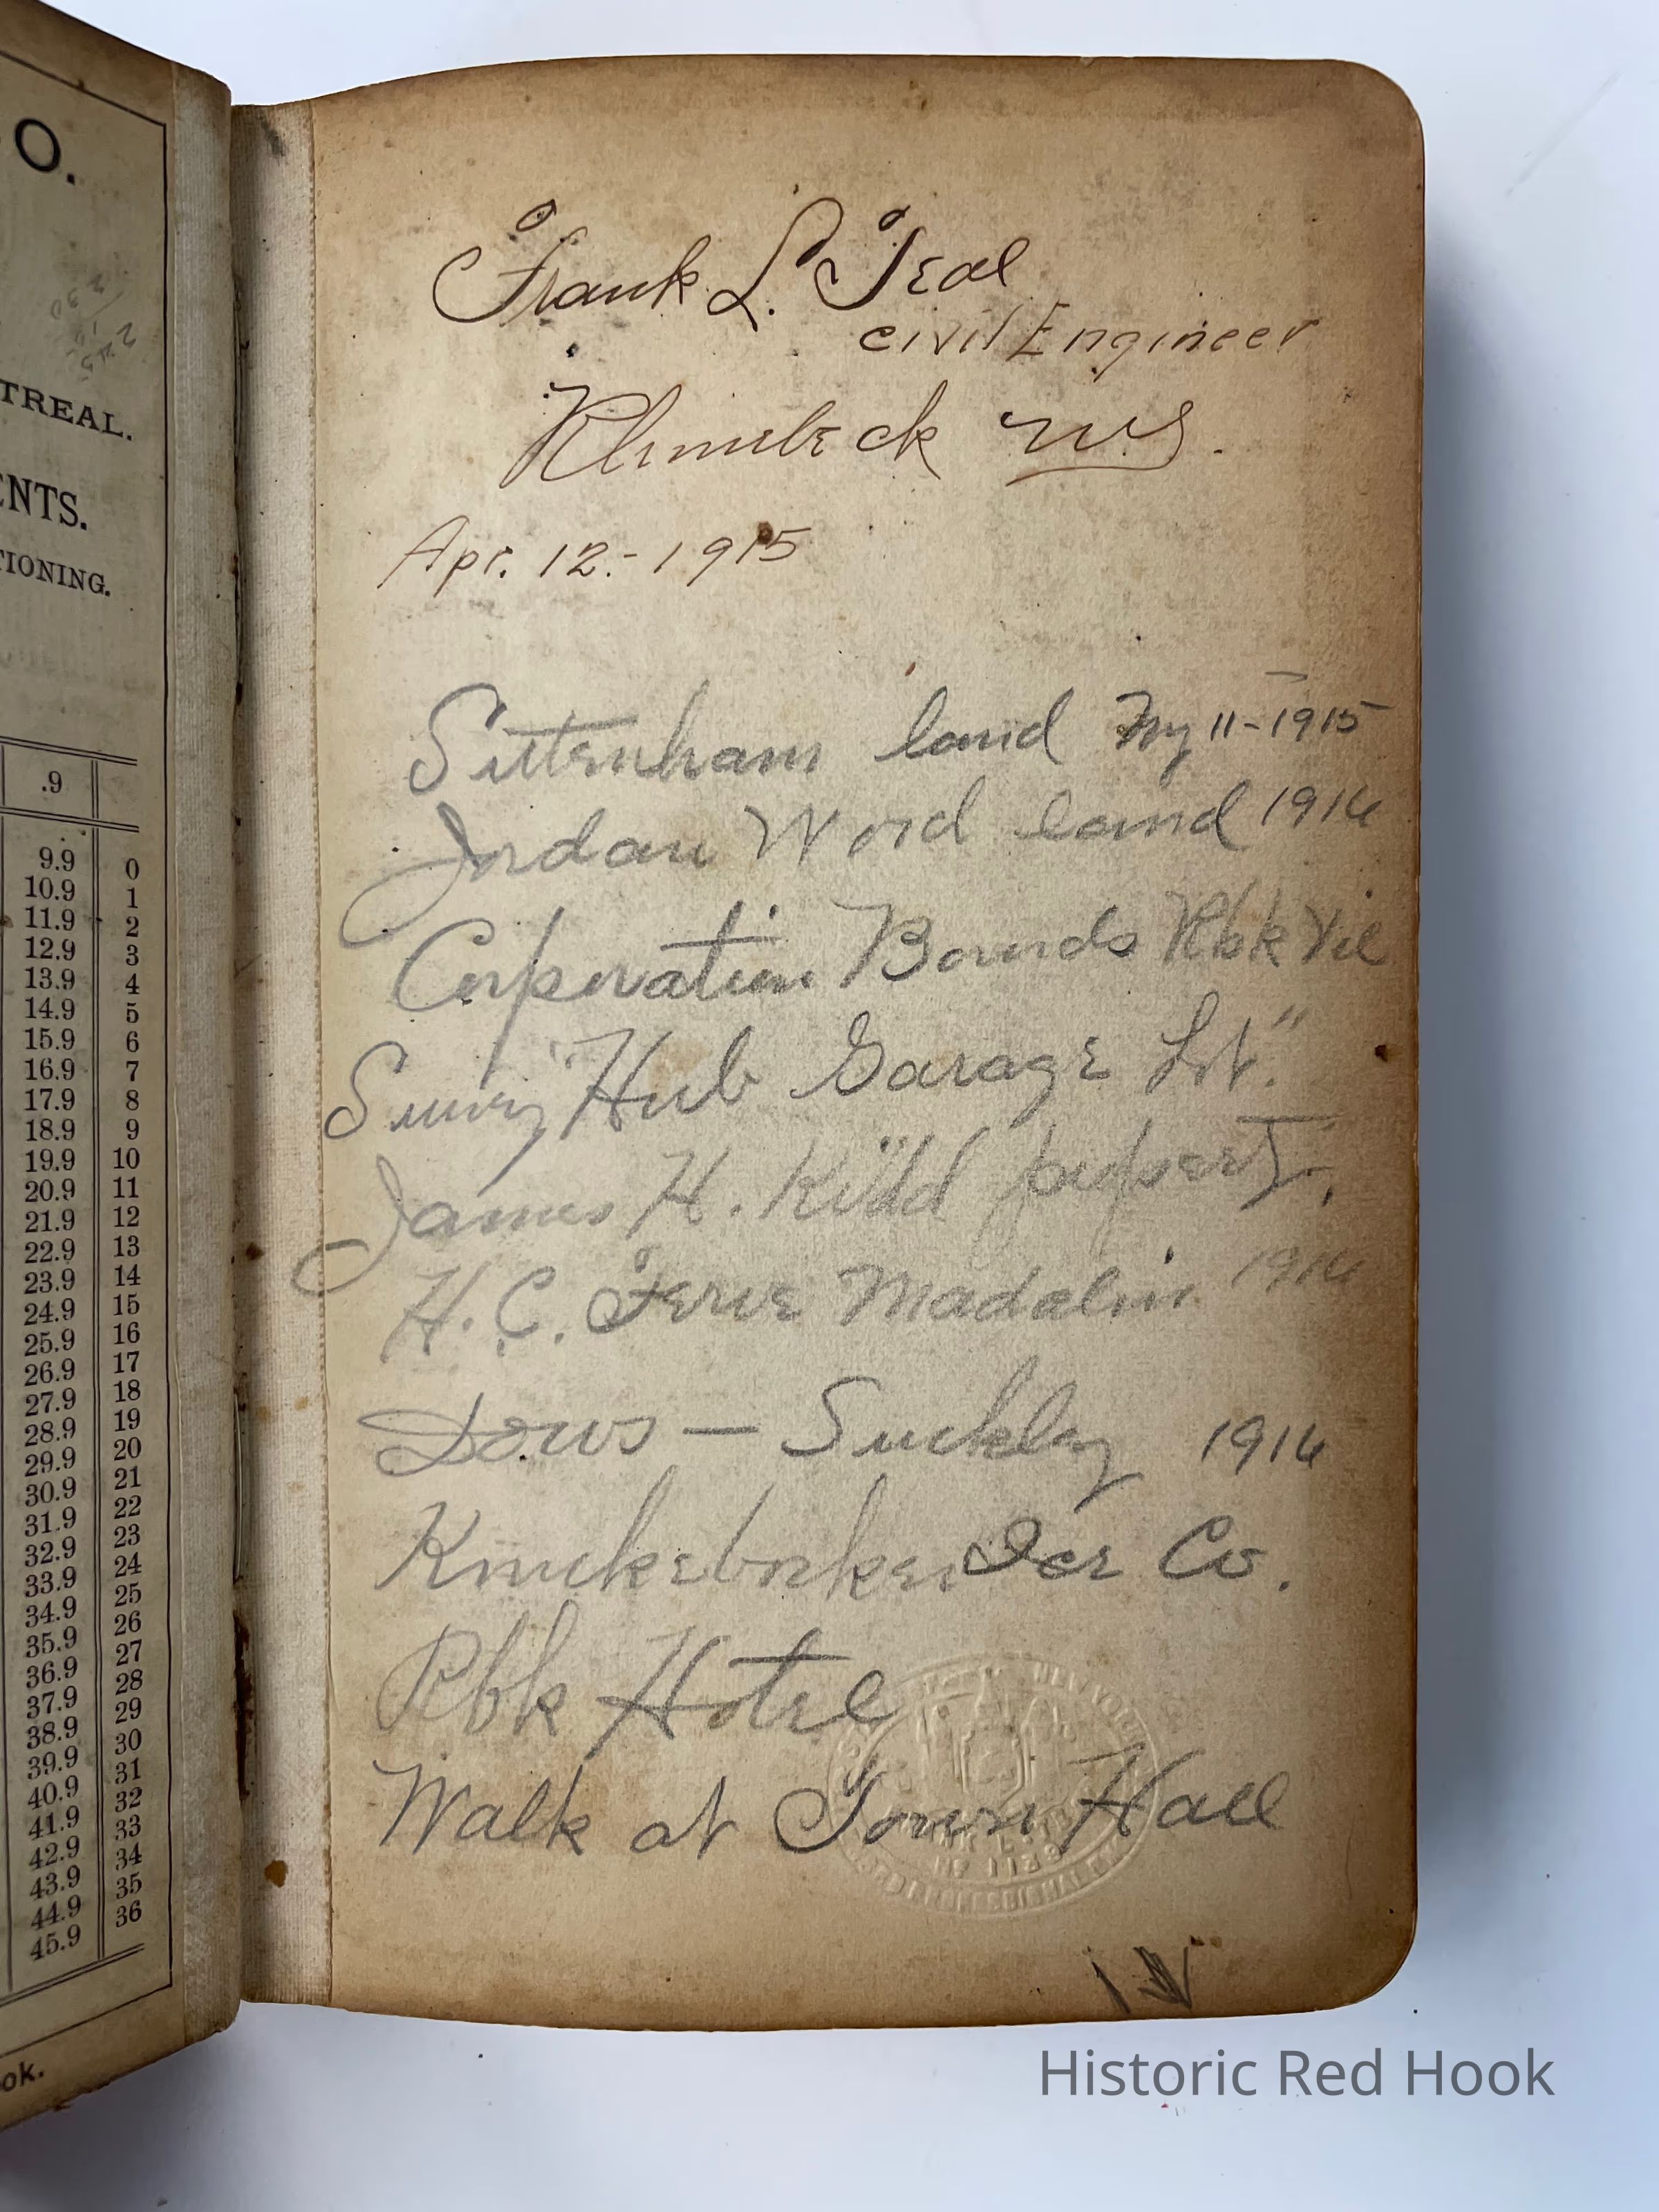 O.
TREAL.
ENTS.
TIONING.
.9
9.9 0
10.9 1
11.9 2
12.9 3
13.9 4
14.9 5
15.9 6
16.9 7
17.9 8
18.9 9
19.9 10
20.9 11
21.9 12
22.9 13
23.9 14
24.9 15
25.9 16
26.9 17
27.9 18
28.9 19
29.9 20
30.9 21
31.9 22
32.9 23
33.9 24
34.9 25
35.9 26
36.9 27
37.9 28
38.9 29
39.9 30
40.9 31
41.9 32
42.9 33
43.9 34
44.9 35
45.9 36
ok.
Frank L. Teal
Civil Engineer
Rhinebeck N.Y.
Apr. 12.-1915
Sittenham land My 11-1915
Jordan Word land 1916
Corporation Bounds Rbk Vil
Survey "Hub Garage Lot."
James H. Kidd property.
H. C. Madalin 1916
Dows — Suckley 1916
Knickerbocker Ice Co.
Rbk Hotel
Walk at Town Hall
NEW YORK
No 1139
PROFESSIONAL
Historic Red Hook